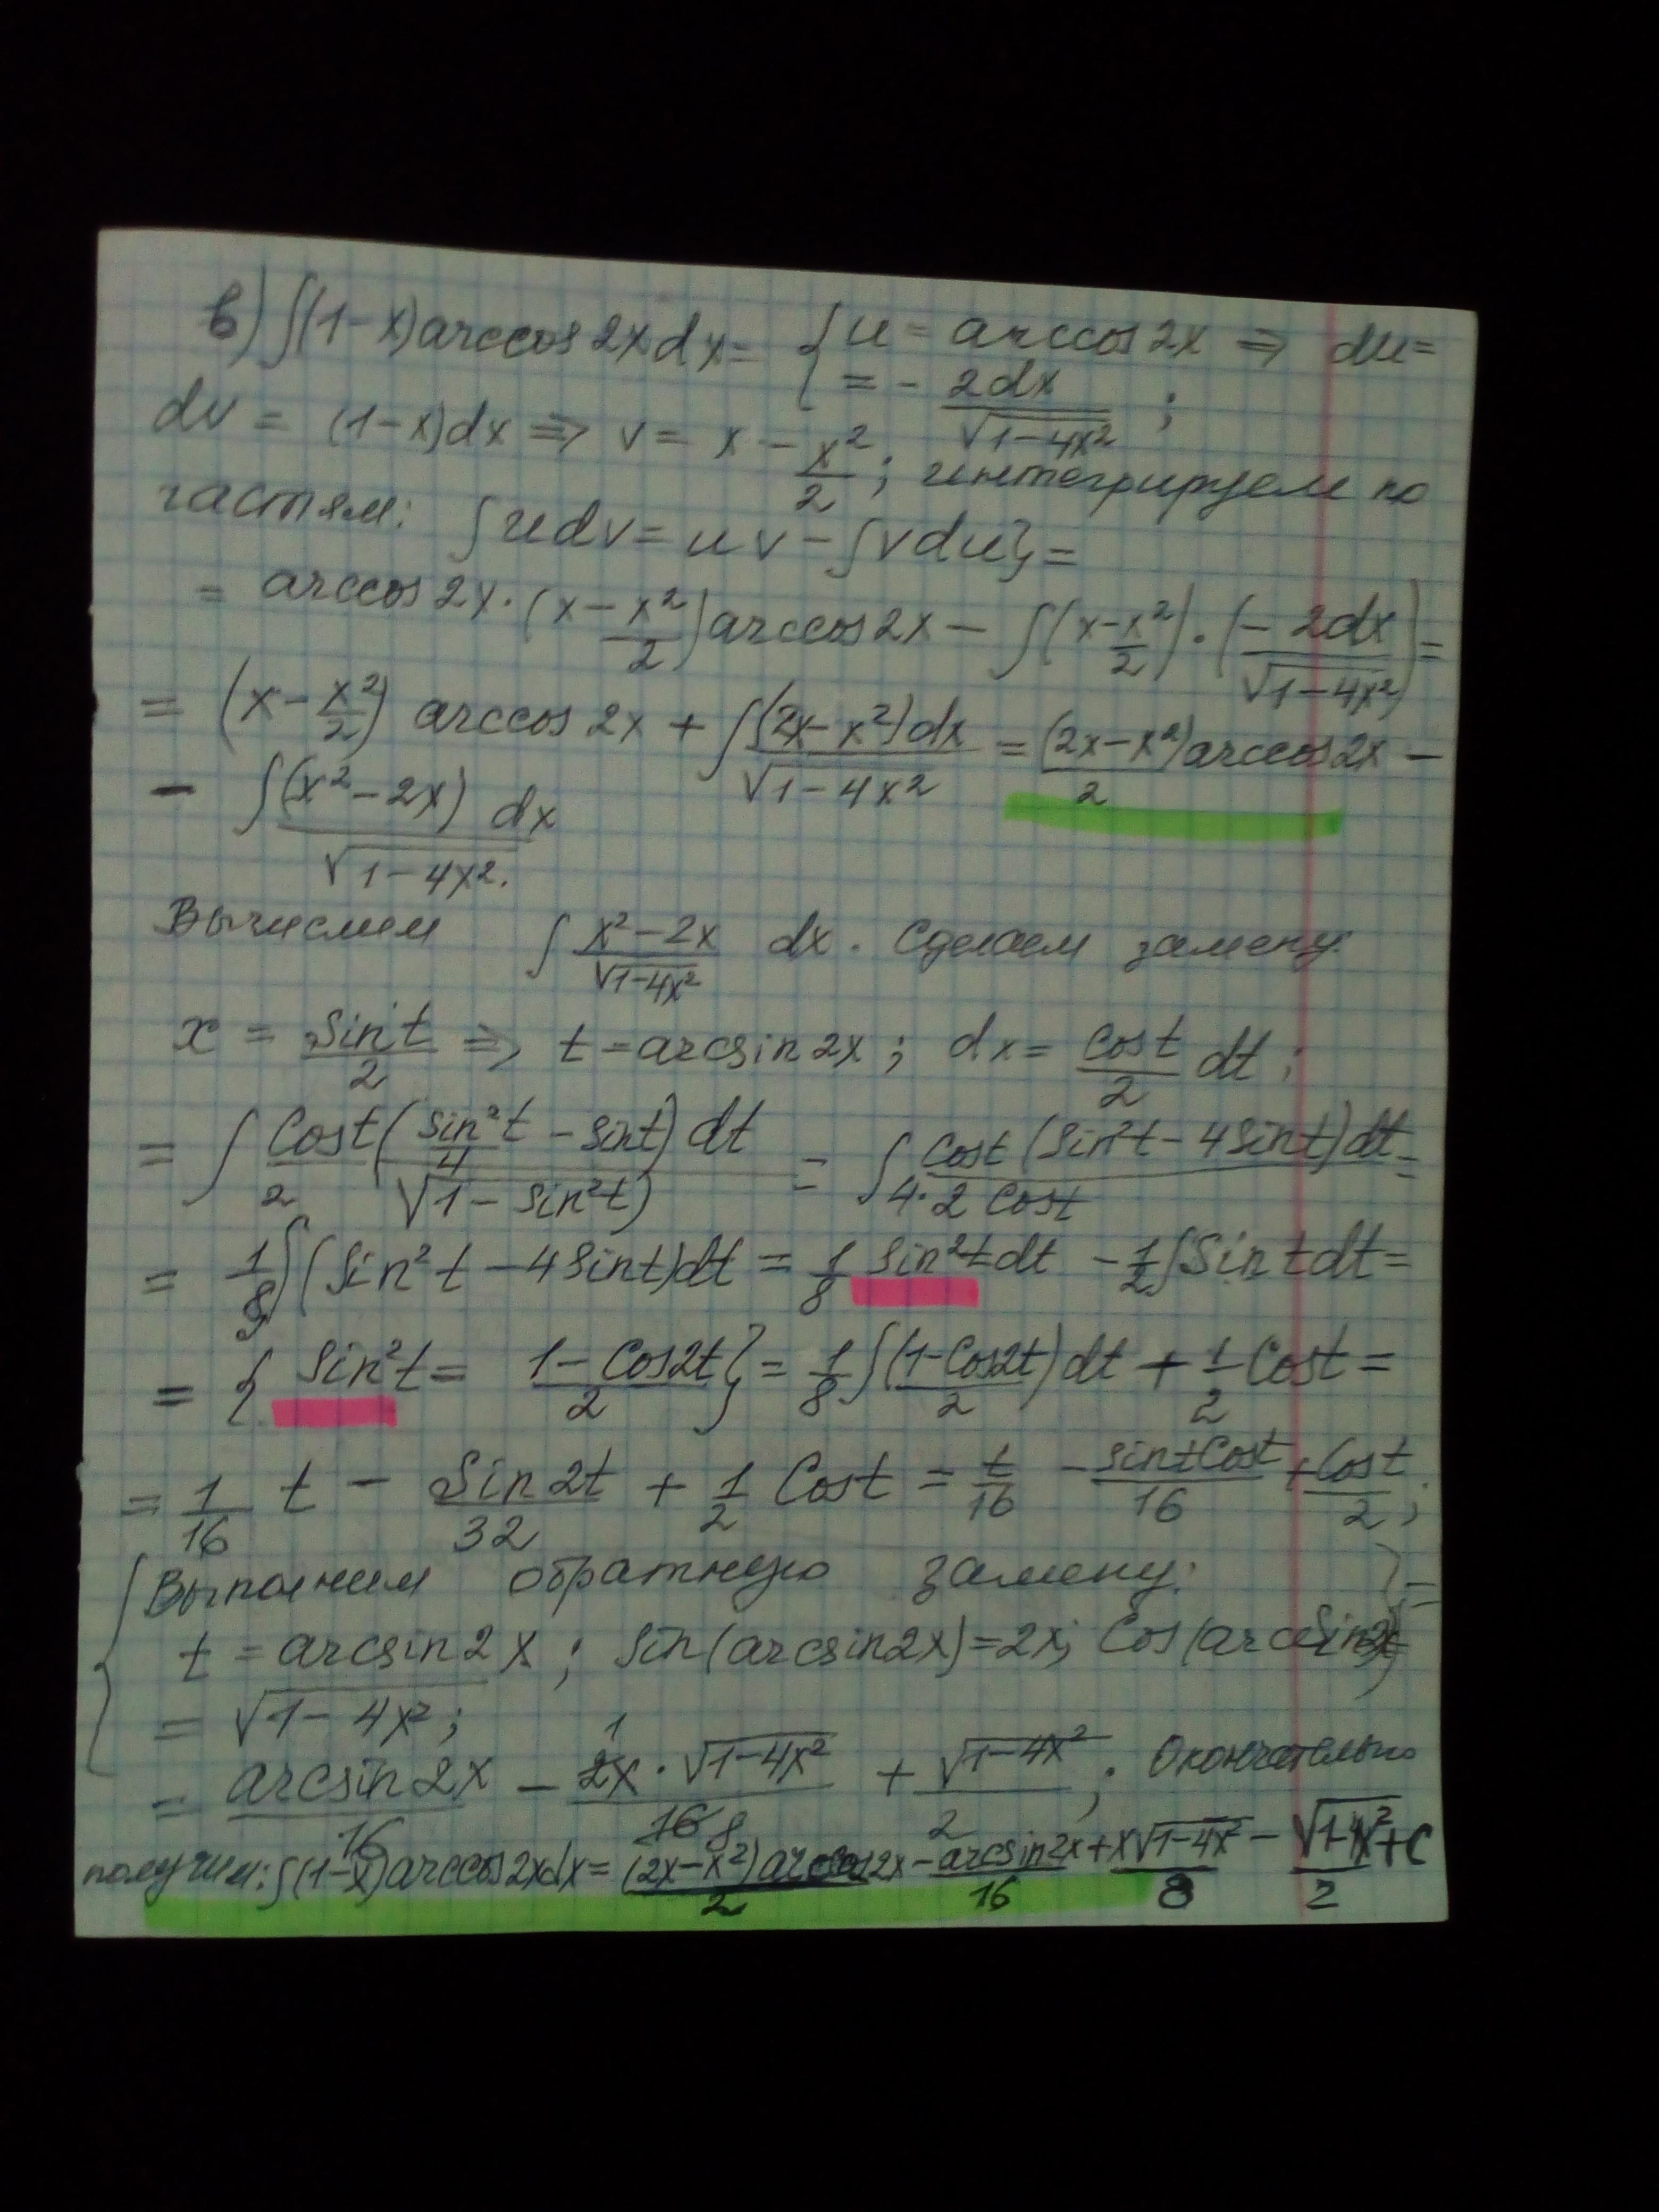 в) ∫(1-x)arccos2xdx= { u = arccos2x ⇒ du=
= - 2dx/√(1-4x²) ;
dv = (1-x)dx ⇒ v = x - x²/2 ; интегрируем по
частям: ∫udv = uv - ∫vdu} =
= arccos2x·(x - x²/2)arccos2x - ∫(x - x²/2)·(- 2dx/√(1-4x²)) =
= (x - x²/2) arccos2x + ∫(2x-x²)dx/√(1-4x²) = (2x-x²)arccos2x/2 -
- ∫(x²-2x)dx/√(1-4x²).
Вычислим ∫ (x²-2x)/√(1-4x²) dx. Сделаем замену:
x = sint/2 ⇒ t = arcsin2x ; dx = cost/2 dt ;
= ∫ cost/2 (sin²t/4 - sint)dt/√(1-sin²t) = ∫ cost(sin²t-4sint)dt/4·2cost =
= 1/8 ∫(sin²t-4sint)dt = 1/8 sin²tdt - 1/2∫sintdt =
= { sin²t = (1-cos2t)/2 } = 1/8 ∫(1-cos2t)/2 dt + 1/2 cost =
= 1/16 t - sin2t/32 + 1/2 cost = t/16 - sintcost/16 + cost/2 ;
{ Выполним обратную замену: } =
t = arcsin2x ; sin(arcsin2x)=2x; cos(arcsin2x)
= √(1-4x²) ;
= arcsin2x/16 - 2x·√(1-4x²)/16 8 + √(1-4x²)/2 ; Окончательно
получим: ∫(1-x)arccos2xdx = (2x-x²)arccos2x/2 - arcsin2x/16 + x√(1-4x²)/8 - √(1-4x²)/2 + C